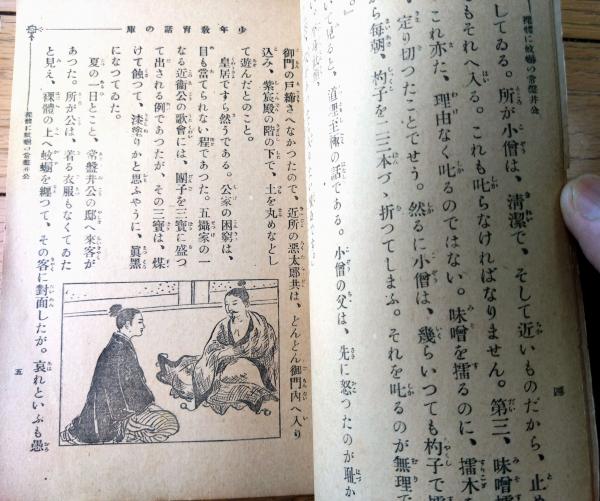 裸體に蚊帳の常盤井公
してゐる。所が小僧は、清潔で、そして近いものだから、止
もそれへ入る。これも叱らなければなりません。第三、味噌
これ亦た、理由なく叱るのではない。味噌を擂るのに、擂木
定り切つたことでせう。然るに小僧は、幾らいつても杓子で
ら毎朝、杓子を二三本づゝ折つてしまふ。それを叱るのが無理で
いて見ると、道理至極の話である。小僧の父は、先に怒つたのが恥か
四
少年教育話の庫
御門の戸締さへなかつたので、近所の惡太郎共は、どんどん御門内へ入り
込み、紫宸殿の階の下で、土を丸めなどし
て遊んだとのこと。
皇居ですら然うである。公家の困窮は、
目も當てられない程であつた。五攝家の一
なる近衞公の歌會には、團子を三寶に盛つ
て出される例であつたが、その三寶は、煤
けて蝕つて、漆塗りかと思ふやうに、眞黑
になつてゐた。
夏の一日とこと、常盤井公の邸へ來客が
あつた。所が公は、着る衣服もなくてゐた
と見え、裸體の上へ蚊帳を纏つて、その客に對面したが。哀れといふも愚
裸體に蚊帳の常盤井公
五